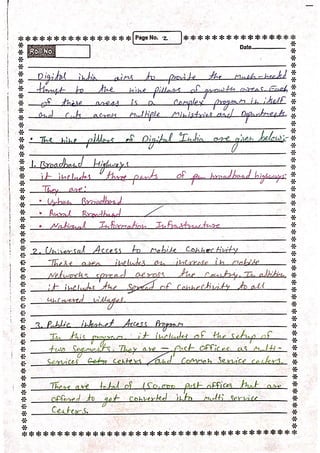 Page No. 2
Roll No.
Date
Digital india aims to provide the much-need
thrust to the nine pillars of growth areas. Each
of these areas is a complex program in itself
and cuts across multiple Ministries and Departments
• The nine pillars of Digital India are given below:
1. Broadband Highways
it includes three parts of broadband highways:
They are:
• Urban Broadband
• Rural Broadband
• National Information Infrastructure
2. Universal Access to Mobile Connectivity
These area includes an increase in mobile
Networks spread across the country. In addition
it includes the spread of connectivity to all
uncovered villages.
3. Public internet Access Program
In this program, it includes of the setup of
two segments. They are – Post Offices as multi-
services centers and Common Service centers.
There are total of 150,000 post offices that are
offered to get converted into multi service
Centers.